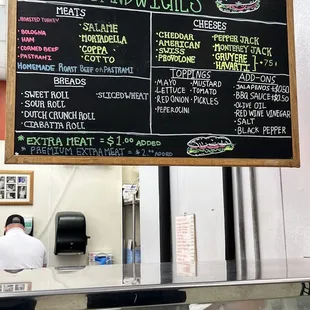 SANDWICHES
MEATS
ROASTED TURKEY
BOLOGNA
HAM
CORNED BEEF
PASTRAMI
SALAME
MORTADELLA
COPPA
COTTO
HOMEMADE ROAST BEEF OR PASTRAMI
CHEESES
CHEDDAR
AMERICAN
SWISS
PROVOLONE
PEPPER JACK
MONTEREY JACK
GRUYERE
HAVARTI
75¢
BREADS
SWEET ROLL
SOUR ROLL
DUTCH CRUNCH ROLL
CIABATTA ROLL
SLICED WHEAT
TOPPINGS
MAYO MUSTARD
LETTUCE TOMATO
RED ONION PICKLES
PEPEROCINI
ADD-ONS
JALAPENOS +$0.50
BBQ SAUCE +$0.50
OLIVE OIL
RED WINE VINEGAR
SALT
BLACK PEPPER
*EXTRA MEAT = $1.00 ADDED
*PREMIUM EXTRA MEAT = $2.00 ADDED